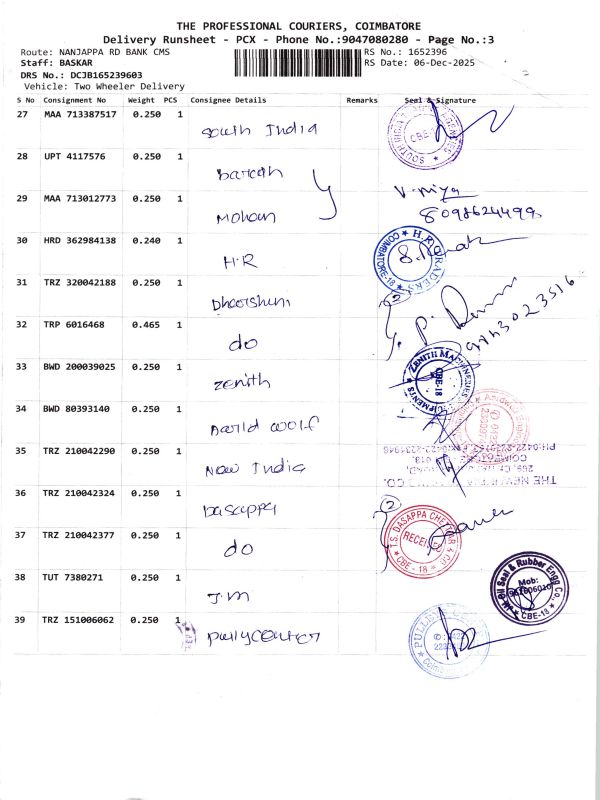 THE PROFESSIONAL COURIERS, COIMBATORE
Delivery Runsheet - PCX - Phone No.:9047080280 - Page No.:3
Route: NANJAPPA RD BANK CMS RS No.: 1652396
Staff: BASKAR RS Date: 06-Dec-2025
DRS No.: DCJB165239603
Vehicle: Two Wheeler Delivery
S No Consignment No Weight PCS Consignee Details Remarks Seal & Signature
27 MAA 713387517 0.250 1
South India
CBE
28 UPT 4117576 0.250 1
29 MAA 713012773 0.250 1
Mohan
8098624499
30 HRD 362984138 0.240 1
H.R
H.R TRADERS
COIMBATORE-18
31 TRZ 320042188 0.250 1
2
32 TRP 6016468 0.465 1
do
33 BWD 200039025 0.250 1
Zenith
ZENITH MACHINERIES
CBE-18
34 BWD 80393140 0.250 1
David Wolf
35 TRZ 210042290 0.250 1
New India
THE NEW INDIA
36 TRZ 210042324 0.250 1
Dasappa
2
37 TRZ 210042377 0.250 1
do
T.S. DASAPPA CHETTIAR & CO
RECEIVED
CBE - 18
38 TUT 7380271 0.250 1
J.M
Oil Seal & Rubber Engg Co.,
Mob:
CBE-18
39 TRZ 151006062 0.250 1
Pully center